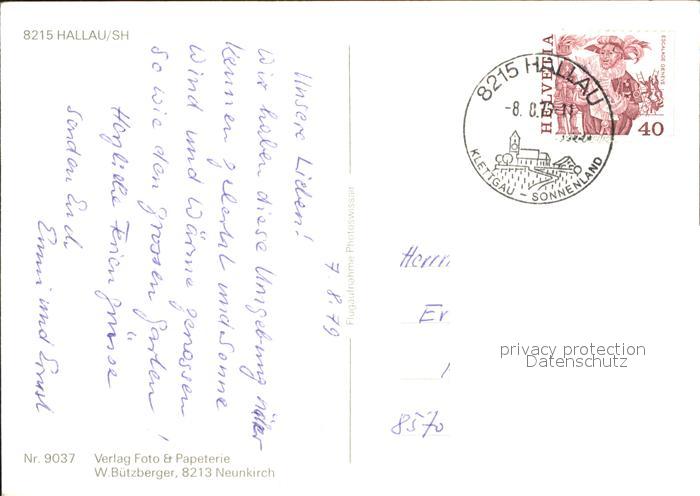 8215 HALLAU/SH
7.8.79
Unsere Lieben!
Wir haben diese Umgebung näher
kennen gelernt und Sonne
Wind und Wärme genossen
so wie den grossen Garten!
Herzliche Feriengrüsse
senden Euch
Emmi und Ernst
Nr. 9037 Verlag Foto & Papeterie
W. Bützberger, 8213 Neunkirch
Flugaufnahme Photoswissair
8215 HALLAU
-8.8.79-11
KLETTGAU - SONNENLAND
HELVETIA
ESCALADE GENÈVE
40
Herrn
Er
8570
privacy protection
Datenschutz